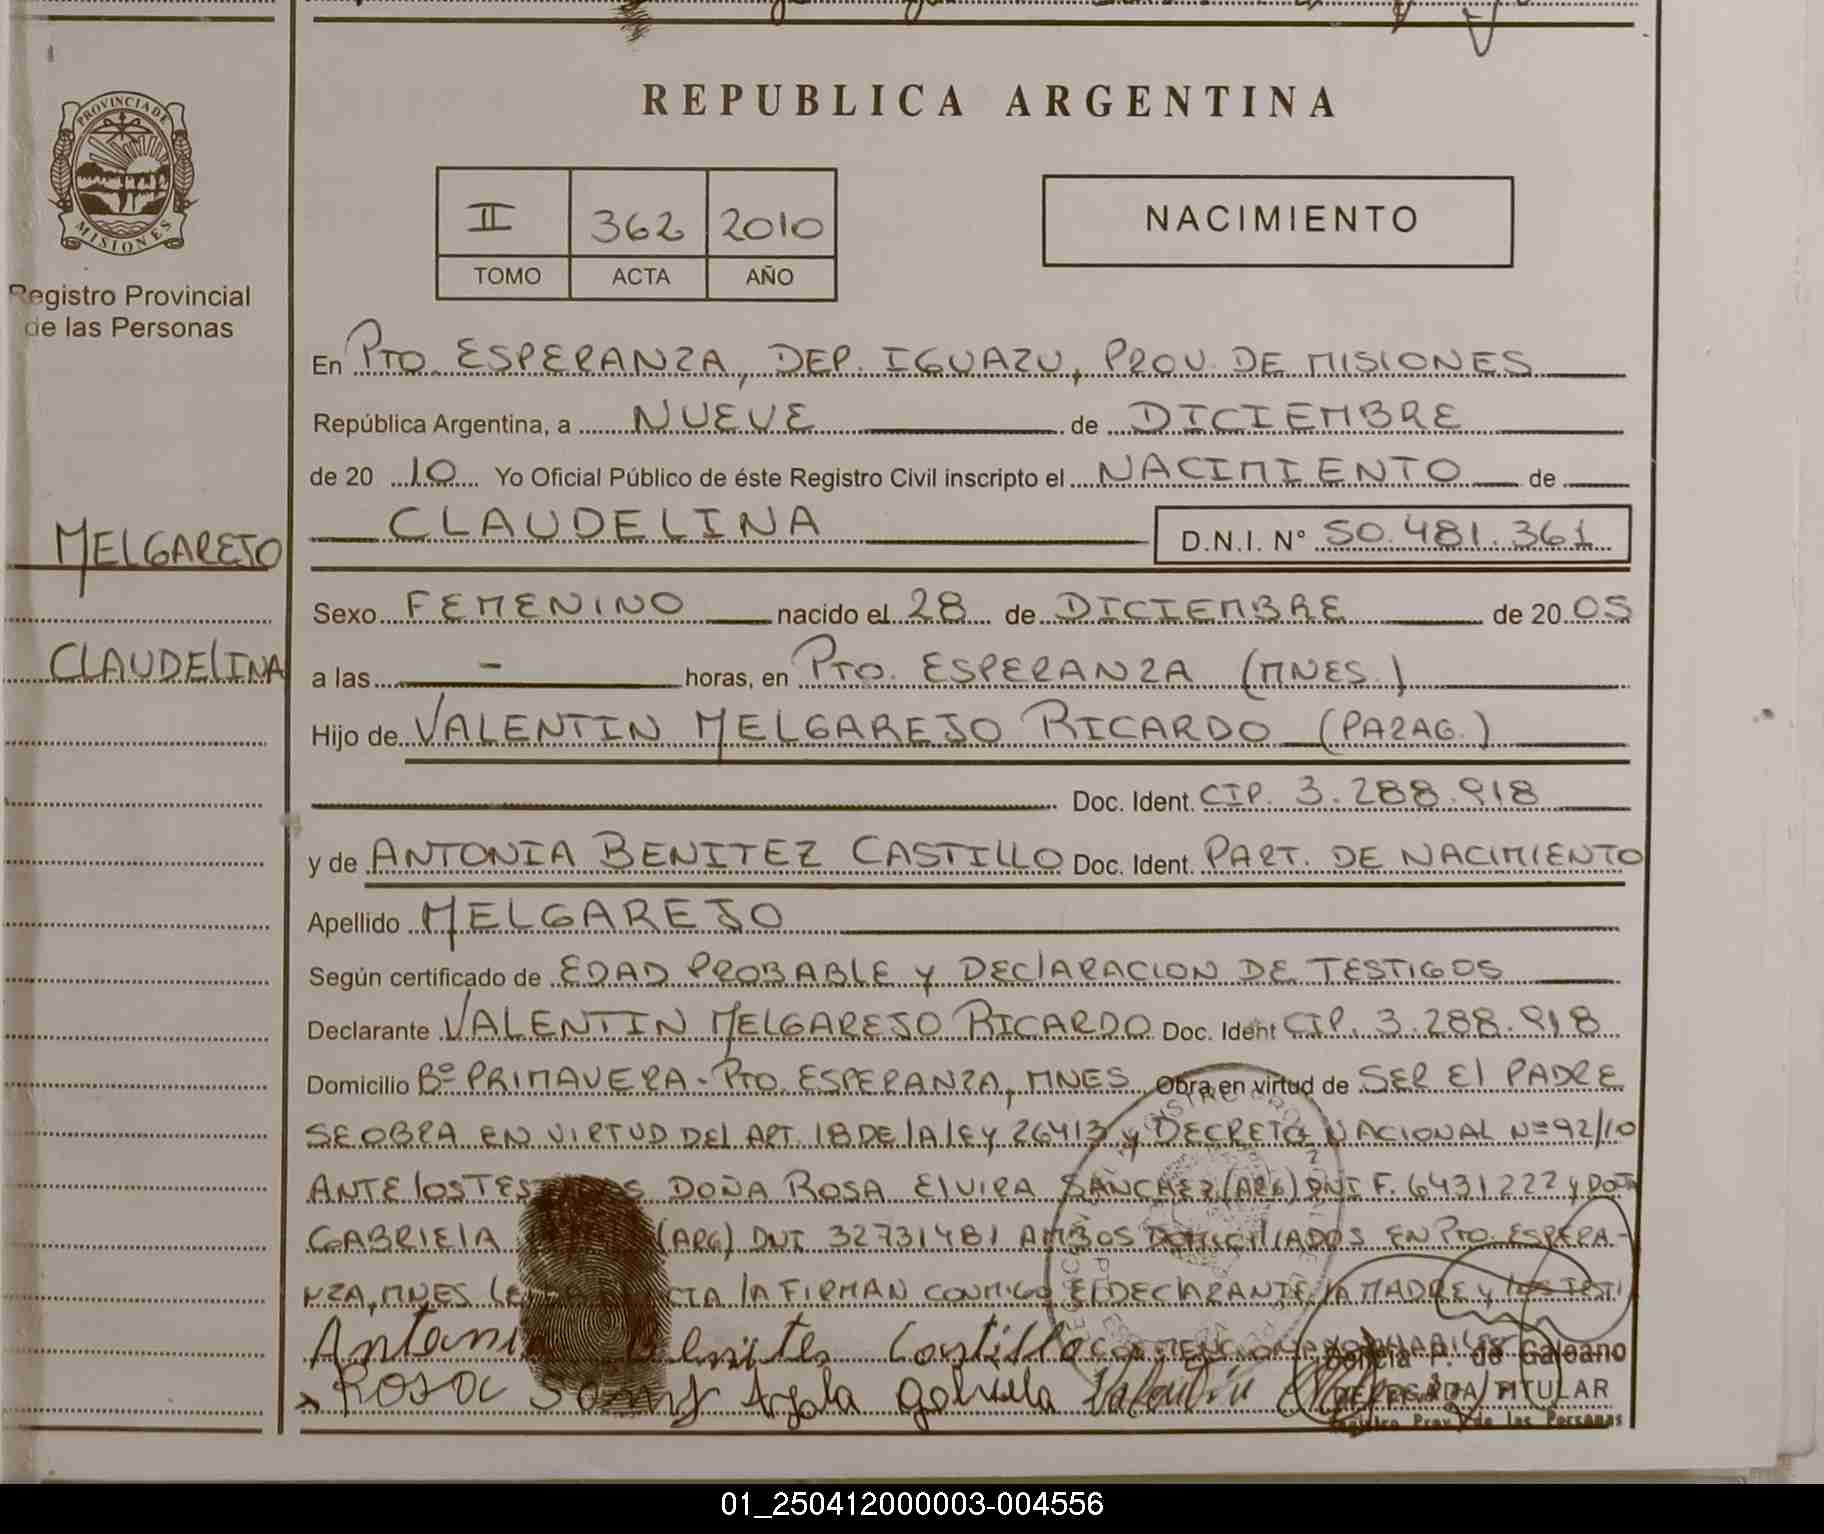 REPUBLICA ARGENTINA
PROVINCIA DE
MISIONES
Registro Provincial
de las Personas
II 362 2010
TOMO ACTA AÑO
NACIMIENTO
En PTO. ESPERANZA, DEP. IGUAZU, PROV. DE MISIONES
República Argentina, a NUEVE de DICIEMBRE
de 20 10 Yo Oficial Público de éste Registro Civil inscripto el NACIMIENTO de
CLAUDELINA D.N.I. N° 50.481.361
MELGAREJO
CLAUDELINA
Sexo FEMENINO nacido el 28 de DICIEMBRE de 20 05
a las - horas, en PTO. ESPERANZA (MNES.)
Hijo de VALENTIN MELGAREJO RICARDO (PARAG.)
Doc. Ident. CIP. 3.288.918
y de ANTONIA BENITEZ CASTILLO Doc. Ident. PART. DE NACIMIENTO
Apellido MELGAREJO
Según certificado de EDAD PROBABLE Y DEClARACION DE TESTIGOS
Declarante VALENTIN MELGAREJO RICARDO Doc. Ident CIP. 3.288.918
Domicilio Bº PRIMAVERA - PTO. ESPERANZA, MNES Obra en virtud de SER El PADRE
SE OBRA EN VIRTUD DEl ART. 18 DE lA lEY 26413 y DECRETO NACIONAL Nº 92/10
ANTE lOS DOÑA ROSA ElVIRA SANCHEZ (ARG) DNI F. 6431222 y DOÑA
GABRIElA (ARG) DNI 32731481 AMBOS DOMICIlIADOS EN PTO. ESPERA-
NZA, MNES lA FIRMAN CONMIGO El DEClARANTE, lA MADRE y lOS TESTI
Antonia Benites Castillo
Rosa Ayala Gabriela Valentin
P. de Galeano
DELEGADA TITULAR
Registro Prov. de las Personas
01_250412000003-004556